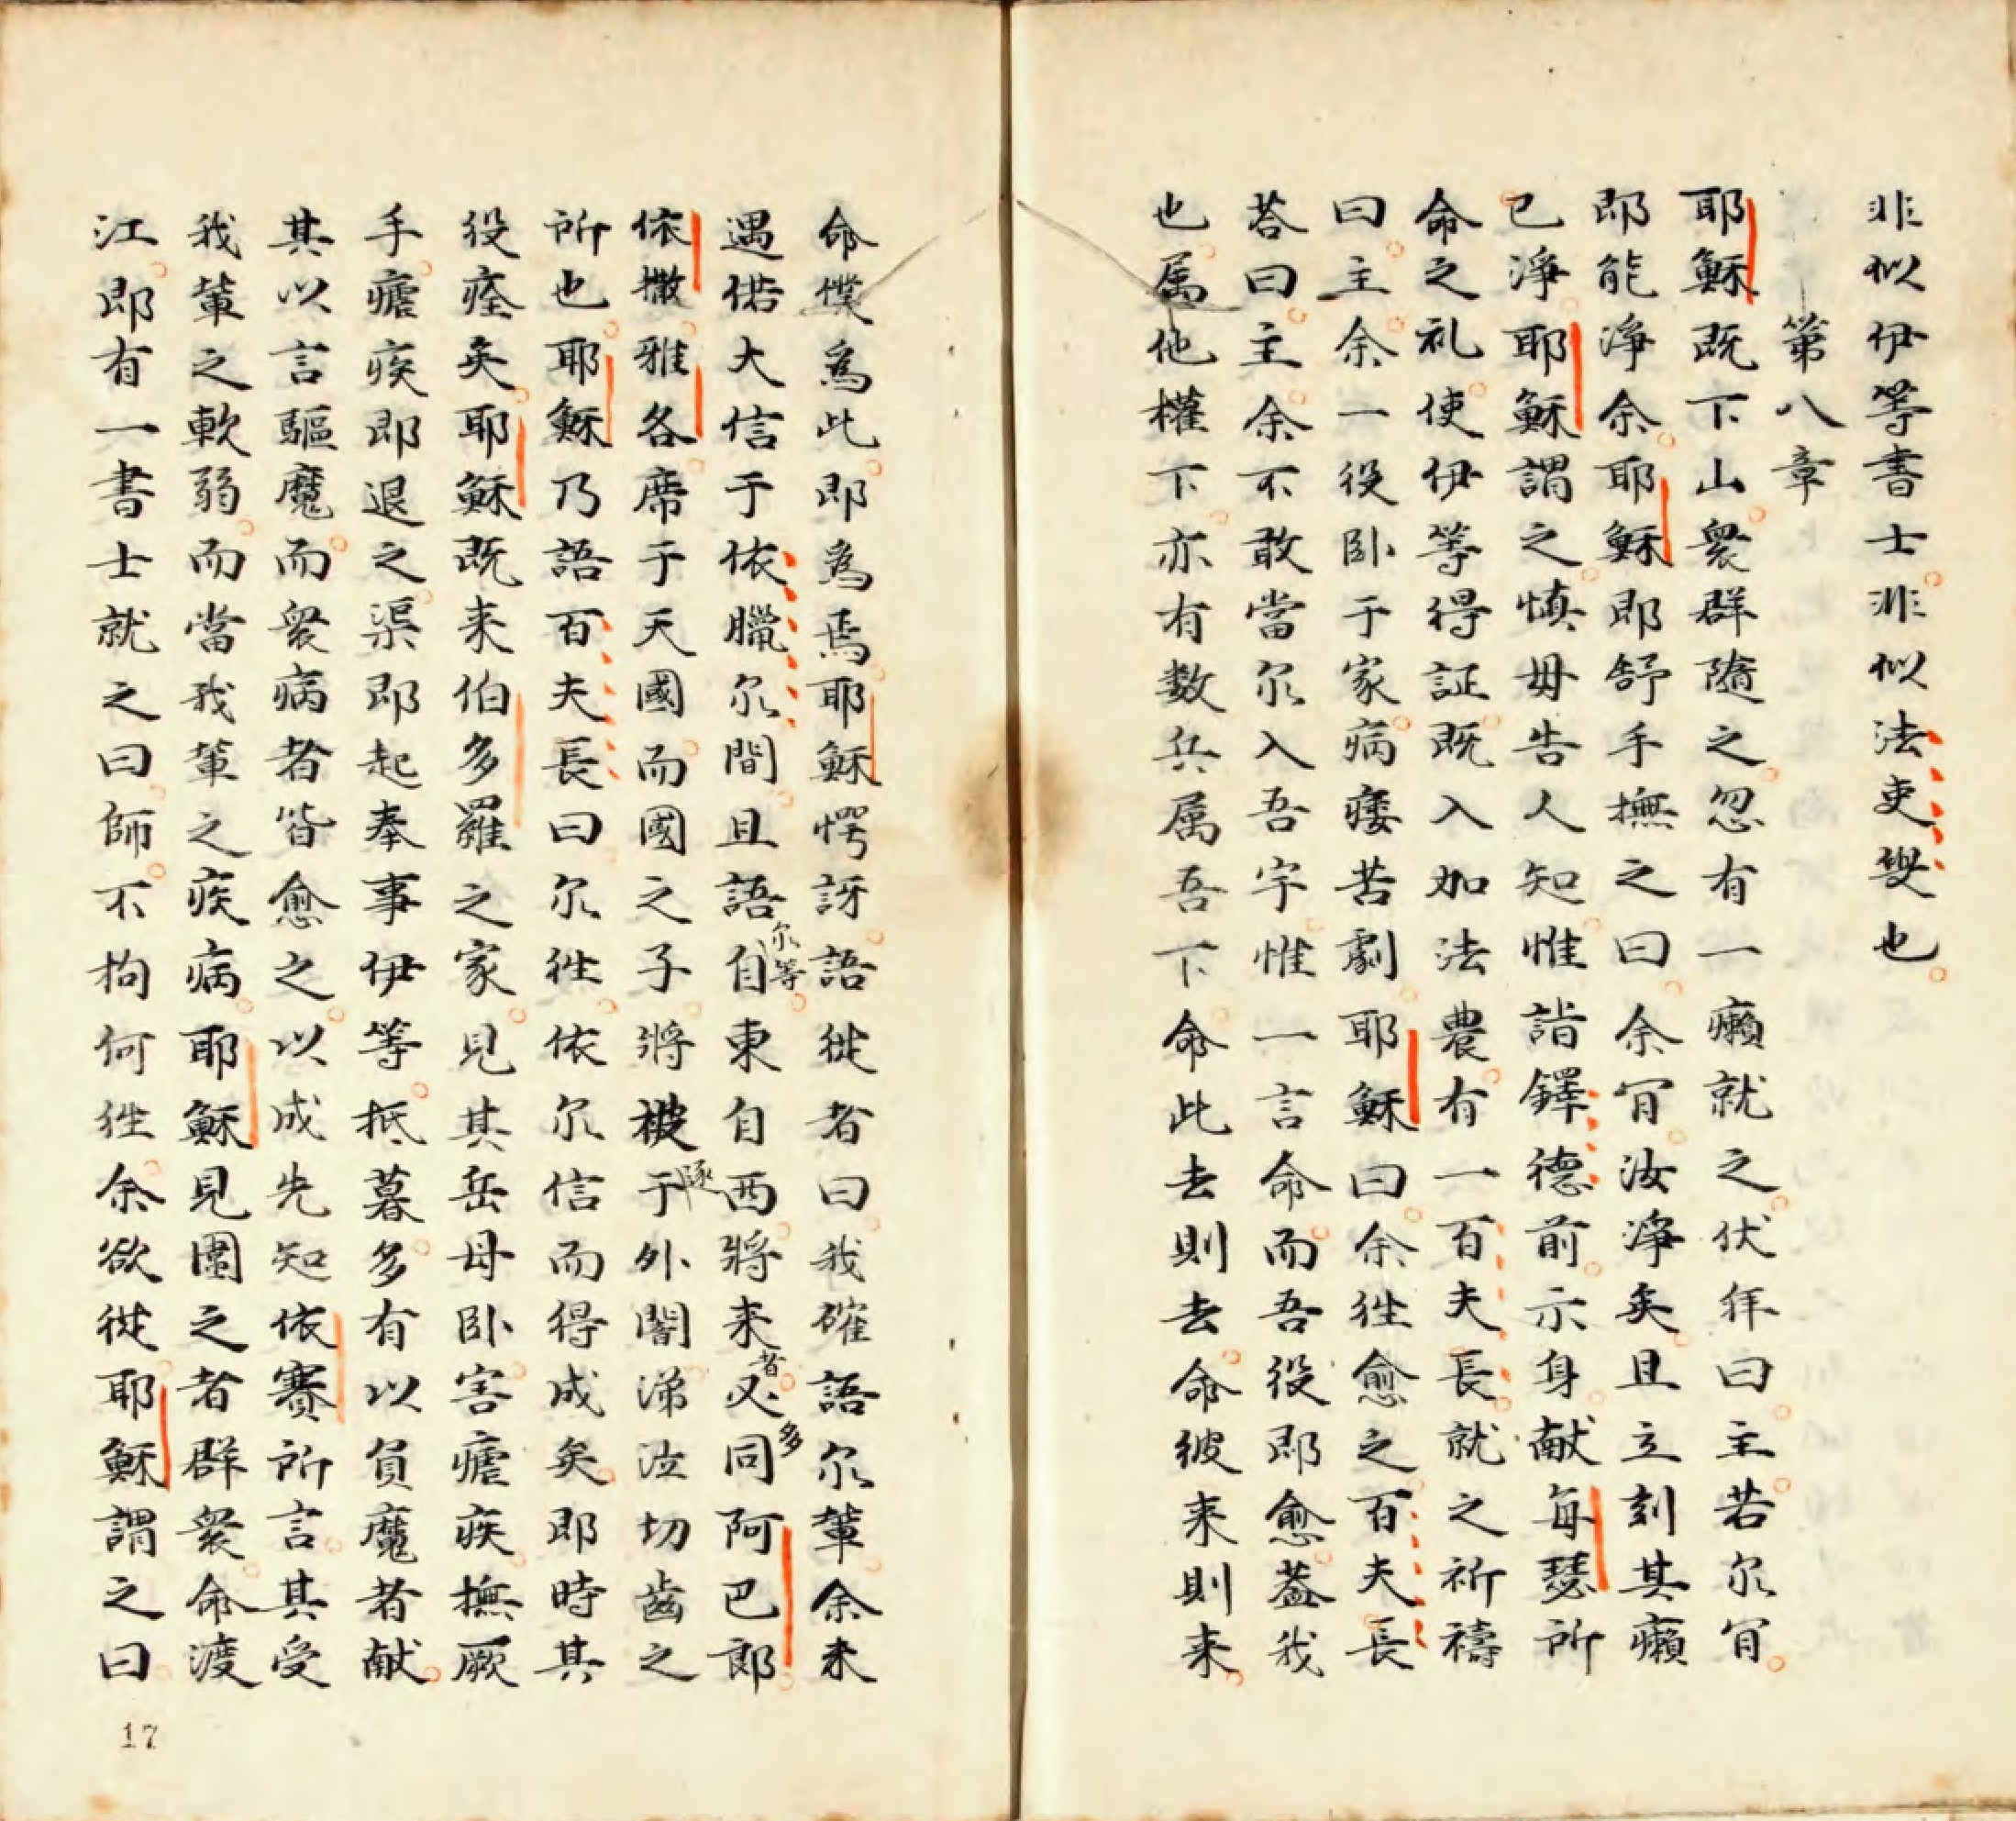 非似伊等書士非似法吏𠮷也
第八章
耶穌既下山衆群隨之忽有一癩就之伏拜曰主若尔肎
即能淨余耶穌即舒手撫之曰余肎汝淨矣且立刻其癩
已淨耶穌謂之慎毋告人知惟詣鐸德前示身献每瑟所
命之礼使伊等得証既入加法農有一百夫長就之祈禱
曰主余一役卧于家病痿苦劇耶穌曰余徃愈之百夫長
荅曰主余不敢當尔入吾宇惟一言命而吾役即愈葢我
也属他權下亦有数兵属吾下命此去則去命彼来則来
命僕為此即為焉耶穌愕訝語従者曰我確語尔輩余未
遇偌大信于依臘尔間且語尔等自東自西將来者必多同阿巴郎
依撒雅各席于天國而國之子將被逐于外闇涕泣切齒之
所也耶穌乃語百夫長曰尔徃依尔信而得成矣即時其
役痊矣耶穌既来伯多羅之家見其岳母卧害瘧疾撫厥
手瘧疾即退之渠即起奉事伊等抵暮多有以負魔者献
其以言驅魔而衆病者皆愈之以成先知依賽所言其受
我輩之軟弱而當我輩之疾病耶穌見圍之者群衆命渡
江即有一書士就之曰師不拘何徃余欲従耶穌謂之曰
17